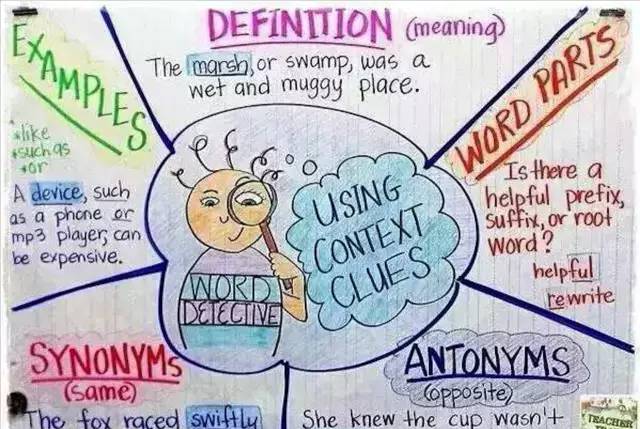 DEFINITION (meaning)
The marsh, or swamp, was a
wet and muggy place.
EXAMPLES
*like
*such as
*or
A device, such
as a phone or
mp3 player, can
be expensive.
WORD PARTS
Is there a
helpful prefix,
suffix, or root
word?
helpful
rewrite
USING
CONTEXT
CLUES
WORD
DETECTIVE
SYNONYMS
(same)
The fox raced swiftly
ANTONYMS
(opposite)
She knew the cup wasn't
TEACHER